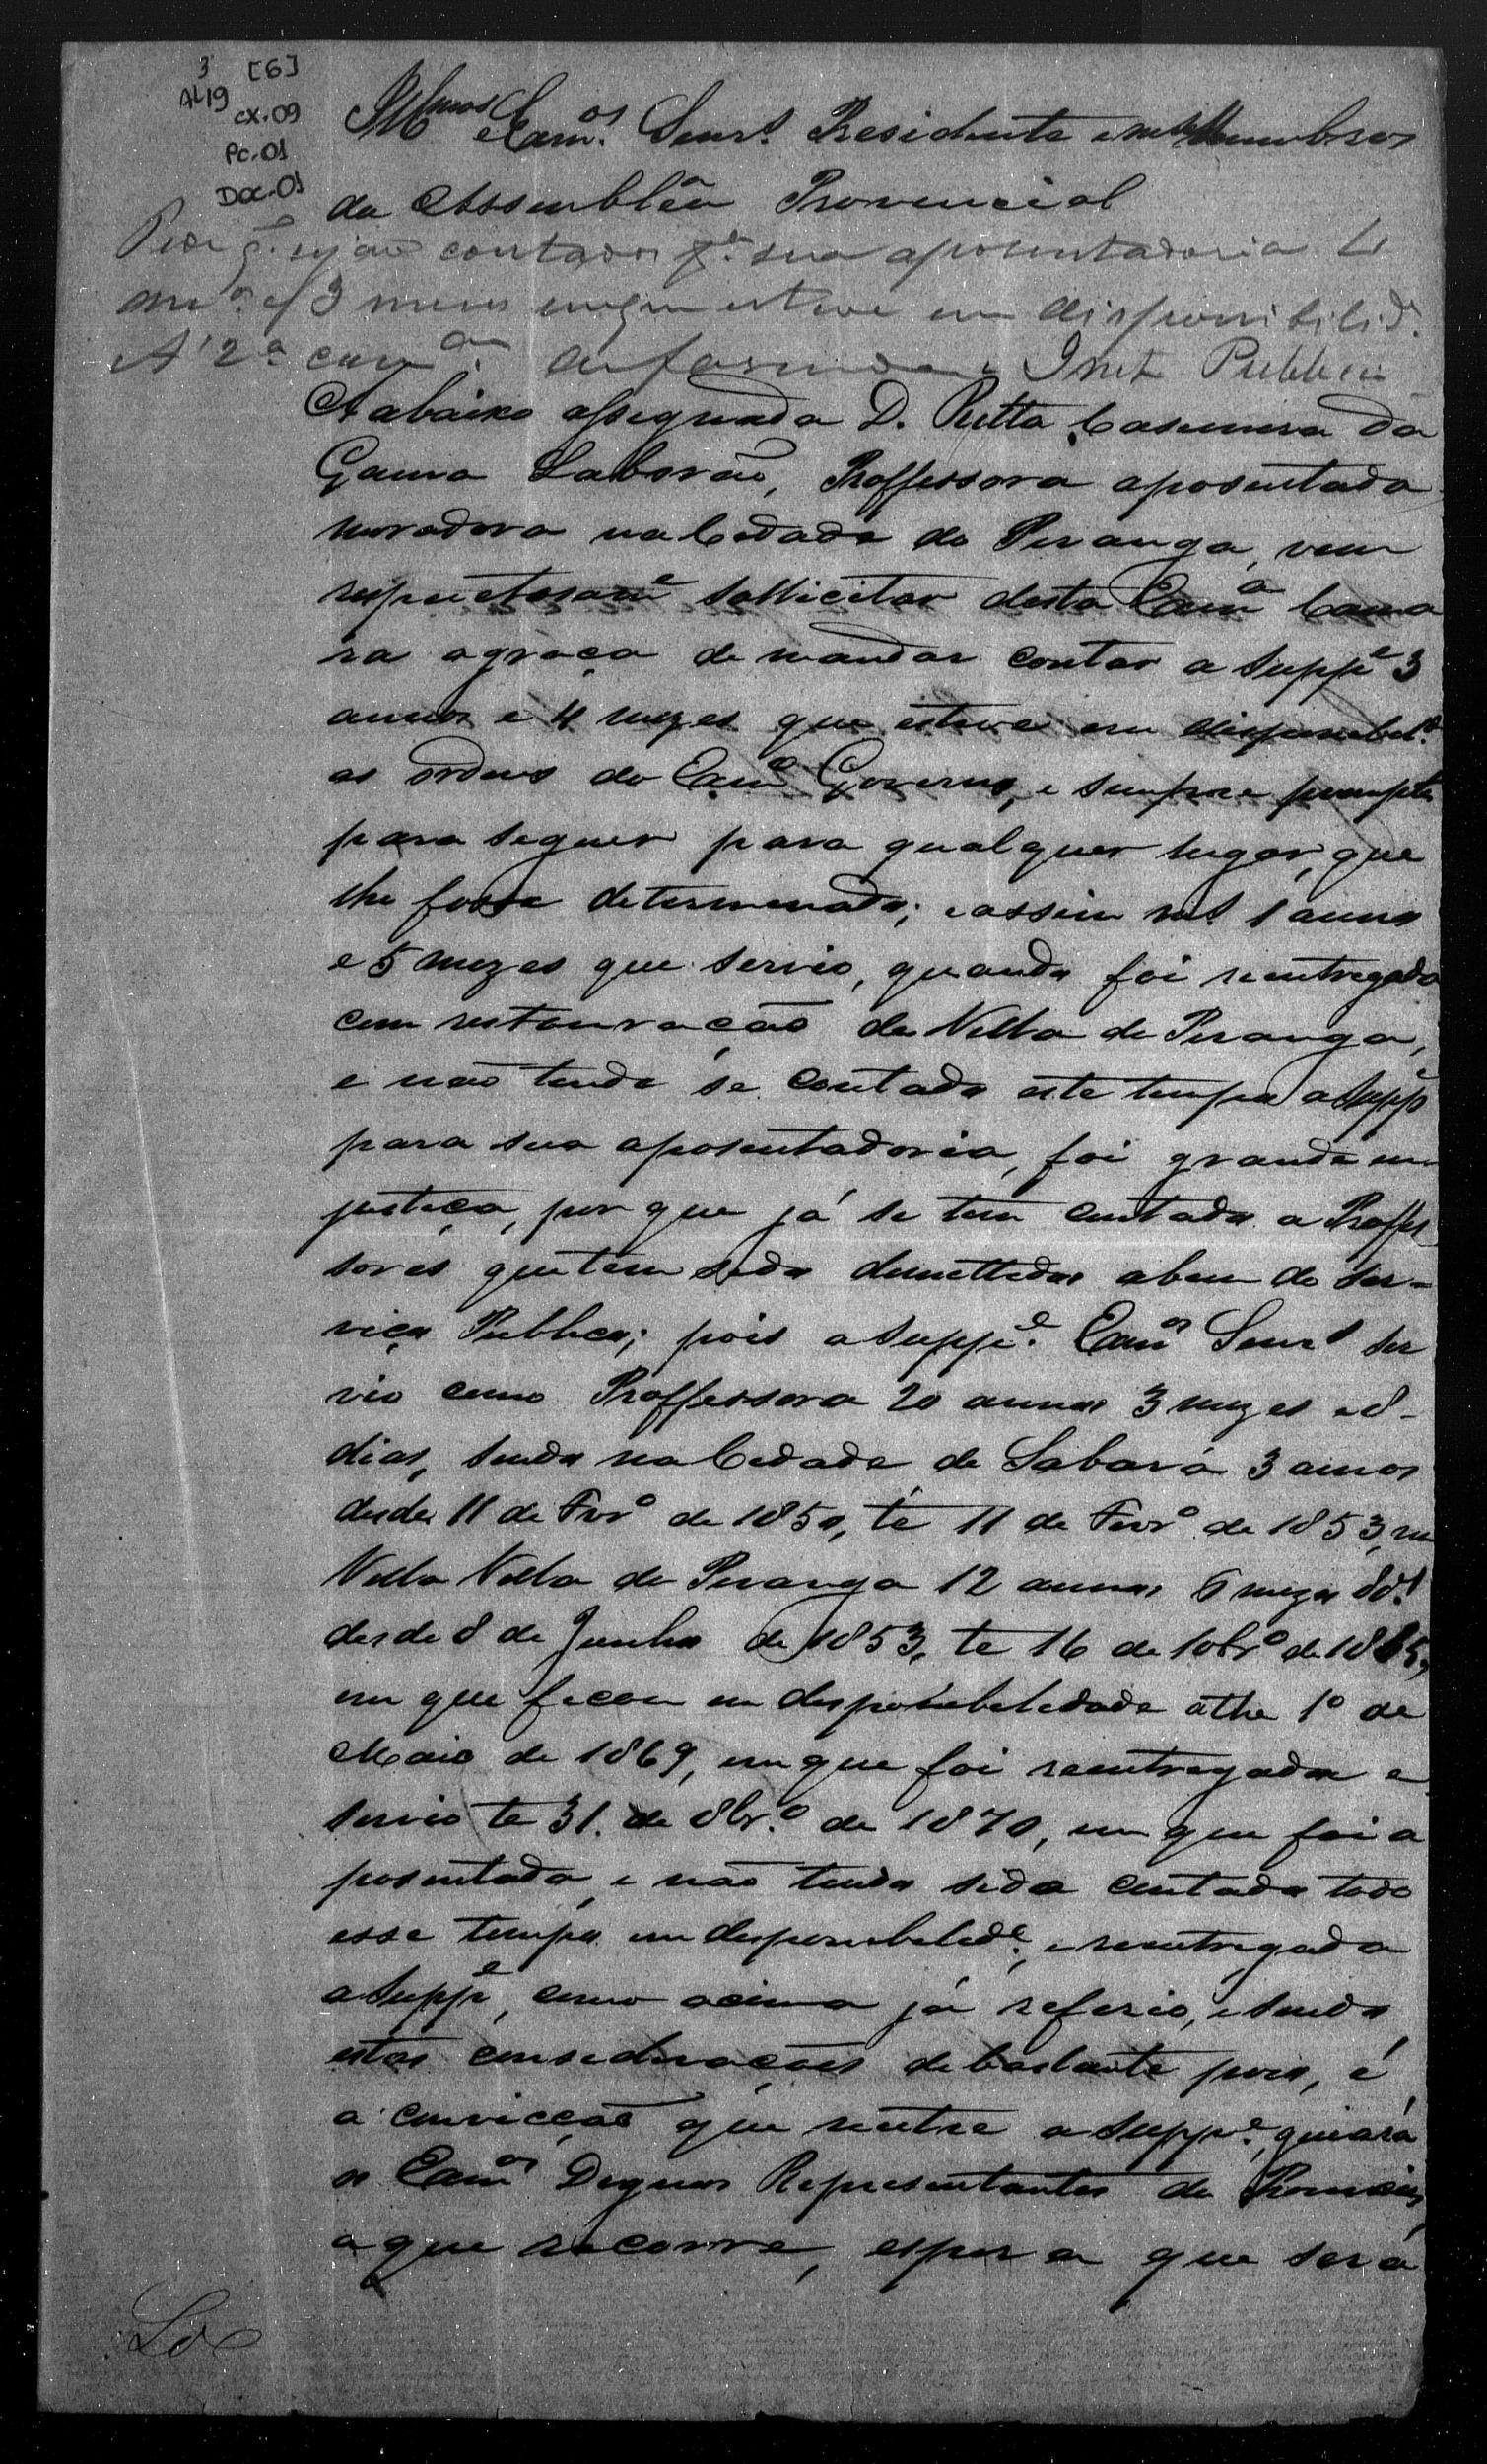 3 [6]
AL19
cx. 09
Pc. 01
Doc. 01
Illmos Exmos. Senrs. Presidente e mais Membros
da Assemblêa Provincial
Pede q. sejão contados pa. sua aposentadoria 4
annos e 3 meses em que esteve em disponibilide.
A' 2a com
Inst Publica
A abaixo assignada D. Ritta Casemira da
Gama Laborão, Proffessora aposentada
moradora na Cedade do Piranga, vem
respeitosame sollicitar desta Exma Cama
ra a graça de mandar contar a Suppe 3
annos e 4 mezes que esteve em disponebelde.
as ordens do Exmo Governo, e sempre prompta
para seguer para qualquer lugar, que
lhe fosse determenado; e assim ms. 1 anno
e 5 mezes que servio, quando foi reentregada
com restauração da Villa de Piranga,
e não tendo se contado este tempo a Suppe
para sua aposentadoria, foi grande in
justeça, por que já se tem contado a Proffes
sores que tem sedo demettedos a bem do ser-
viço Publeco; pois a Suppe. Exmos Senrs ser
vio como Proffessora 20 annos 3 mezes e 8
dias, sendo na Cedade de Sabará 3 annos
desde 11 de Fevro de 1850, té 11 de Fevro de 1853, na
Villa de Piranga 12 annos 6 mezes 8 d.
desde 8 de Junho de 1853, te 16 de 10bro de 1865,
em que fecou em desponebeledade athe 1o de
Maio de 1869, em que foi reentregada e
servio te 31 de 8bro. de 1870, em que foi a
posentada, e não tendo sedo contado todo
esse tempo em desponebelede. e reentregada
a Suppe, como acima já referio, e sendo
estas consederações de bastante pezo, é
a convicção que nutre a Suppe. guiará
os Exmos Degnos Representantes da Provincia,
a que recorre, espera que será